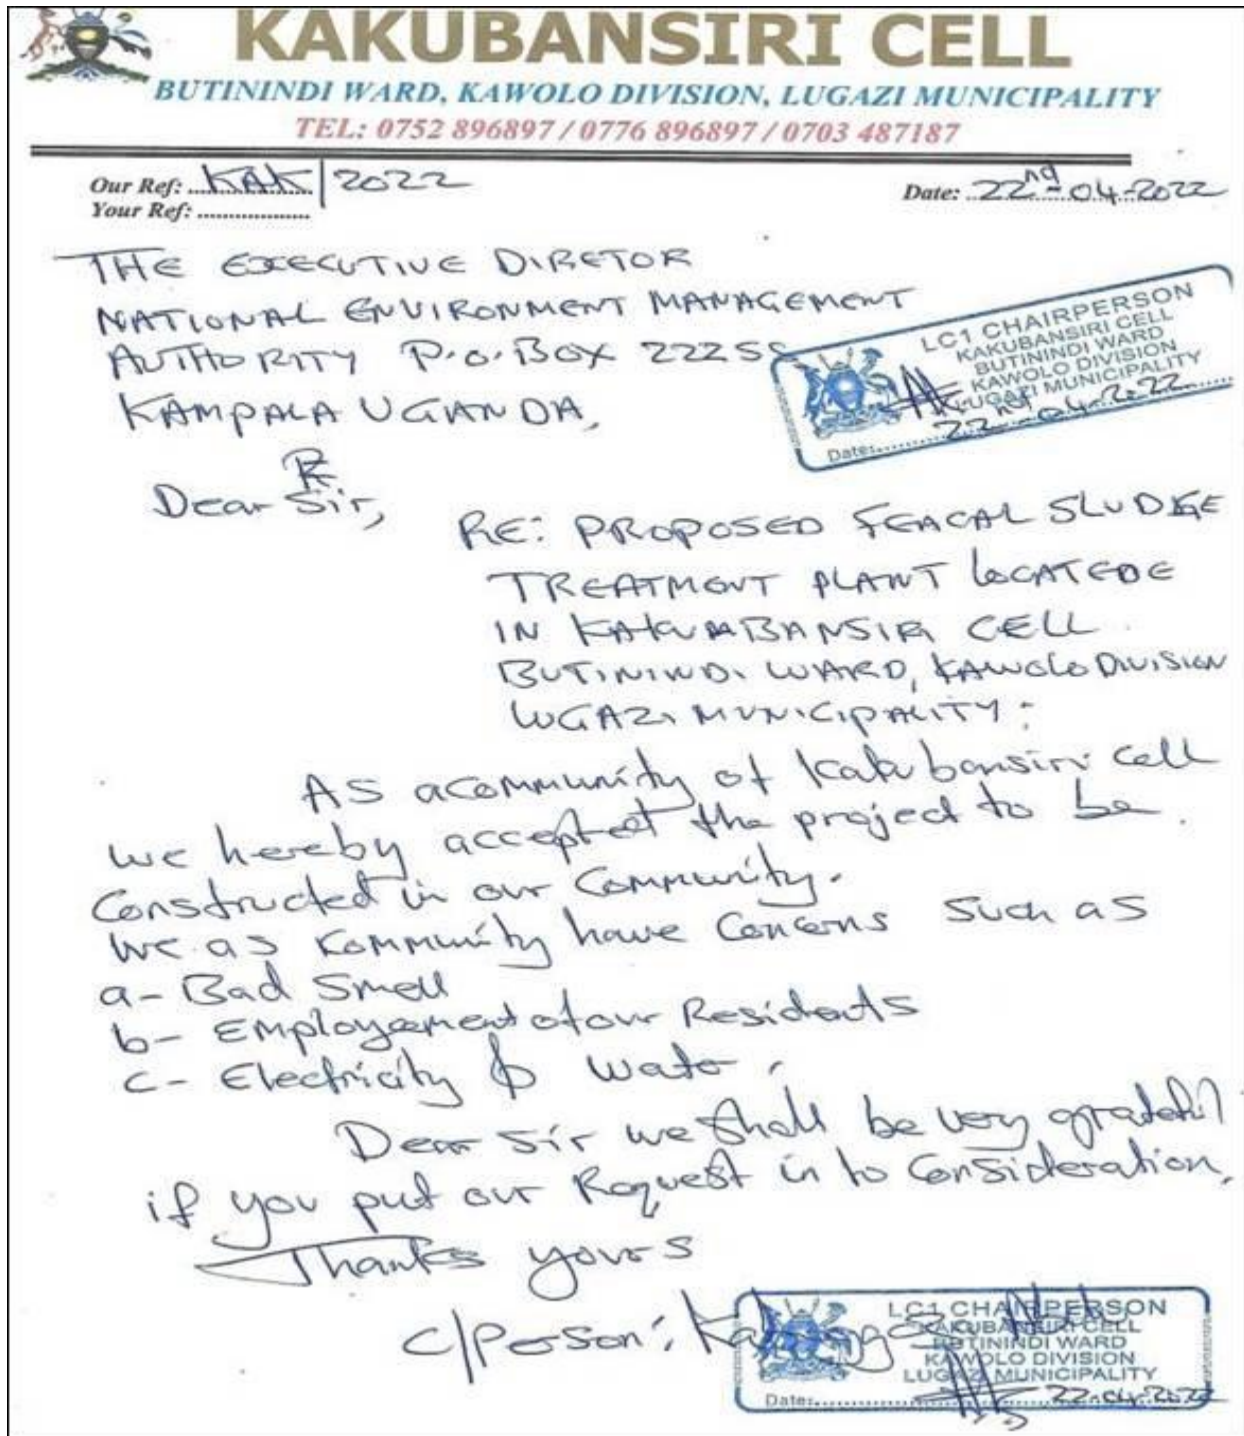 KAKUBANSIRI CELL
BUTININDI WARD, KAWOLO DIVISION, LUGAZI MUNICIPALITY
TEL: 0752 896897 / 0776 896897 / 0703 487187
Our Ref: KAK/2022
Date: 22nd-04-2022
Your Ref:
THE EXECUTIVE DIRETOR
NATIONAL ENVIRONMENT MANAGEMENT
AUTHORITY P.O. BOX 22255
KAMPALA UGANDA,
LC1 CHAIRPERSON
KAKUBANSIRI CELL
BUTININDI WARD
KAWOLO DIVISION
LUGAZI MUNICIPALITY
Date: 22nd-04-2022
Dear Sir,
RE: PROPOSED FEACAL SLUDGE
TREATMENT PLANT LOCATEDE
IN CELL
BUTININDI WARD, KAWOLO DIVISION
LUGAZI MUNICIPALITY:
AS acommunity of Kakubansiri cell
we hereby accepted the project to be
Constructed in our Community.
we as Kommunity have Concerns Such as
a- Bad Smell
b- Employement of our Residents
c- Electricity & Water,
Dear Sir we Shall be very grateful
if you put our Request in to Consideration,
Thanks yours
C/Person:
LC1 CHAIRPERSON
KAKUBANSIRI CELL
BUTININDI WARD
KAWOLO DIVISION
LUGAZI MUNICIPALITY
Date: 22-04-2022